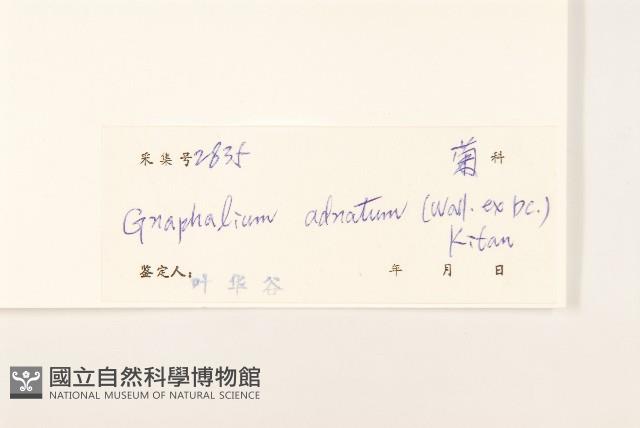 采集号2835 菊科
Gnaphalium adnatum (Wall. ex DC.)
Kitam
鉴定人: 叶华谷 年 月 日
國立自然科學博物館
NATIONAL MUSEUM OF NATURAL SCIENCE